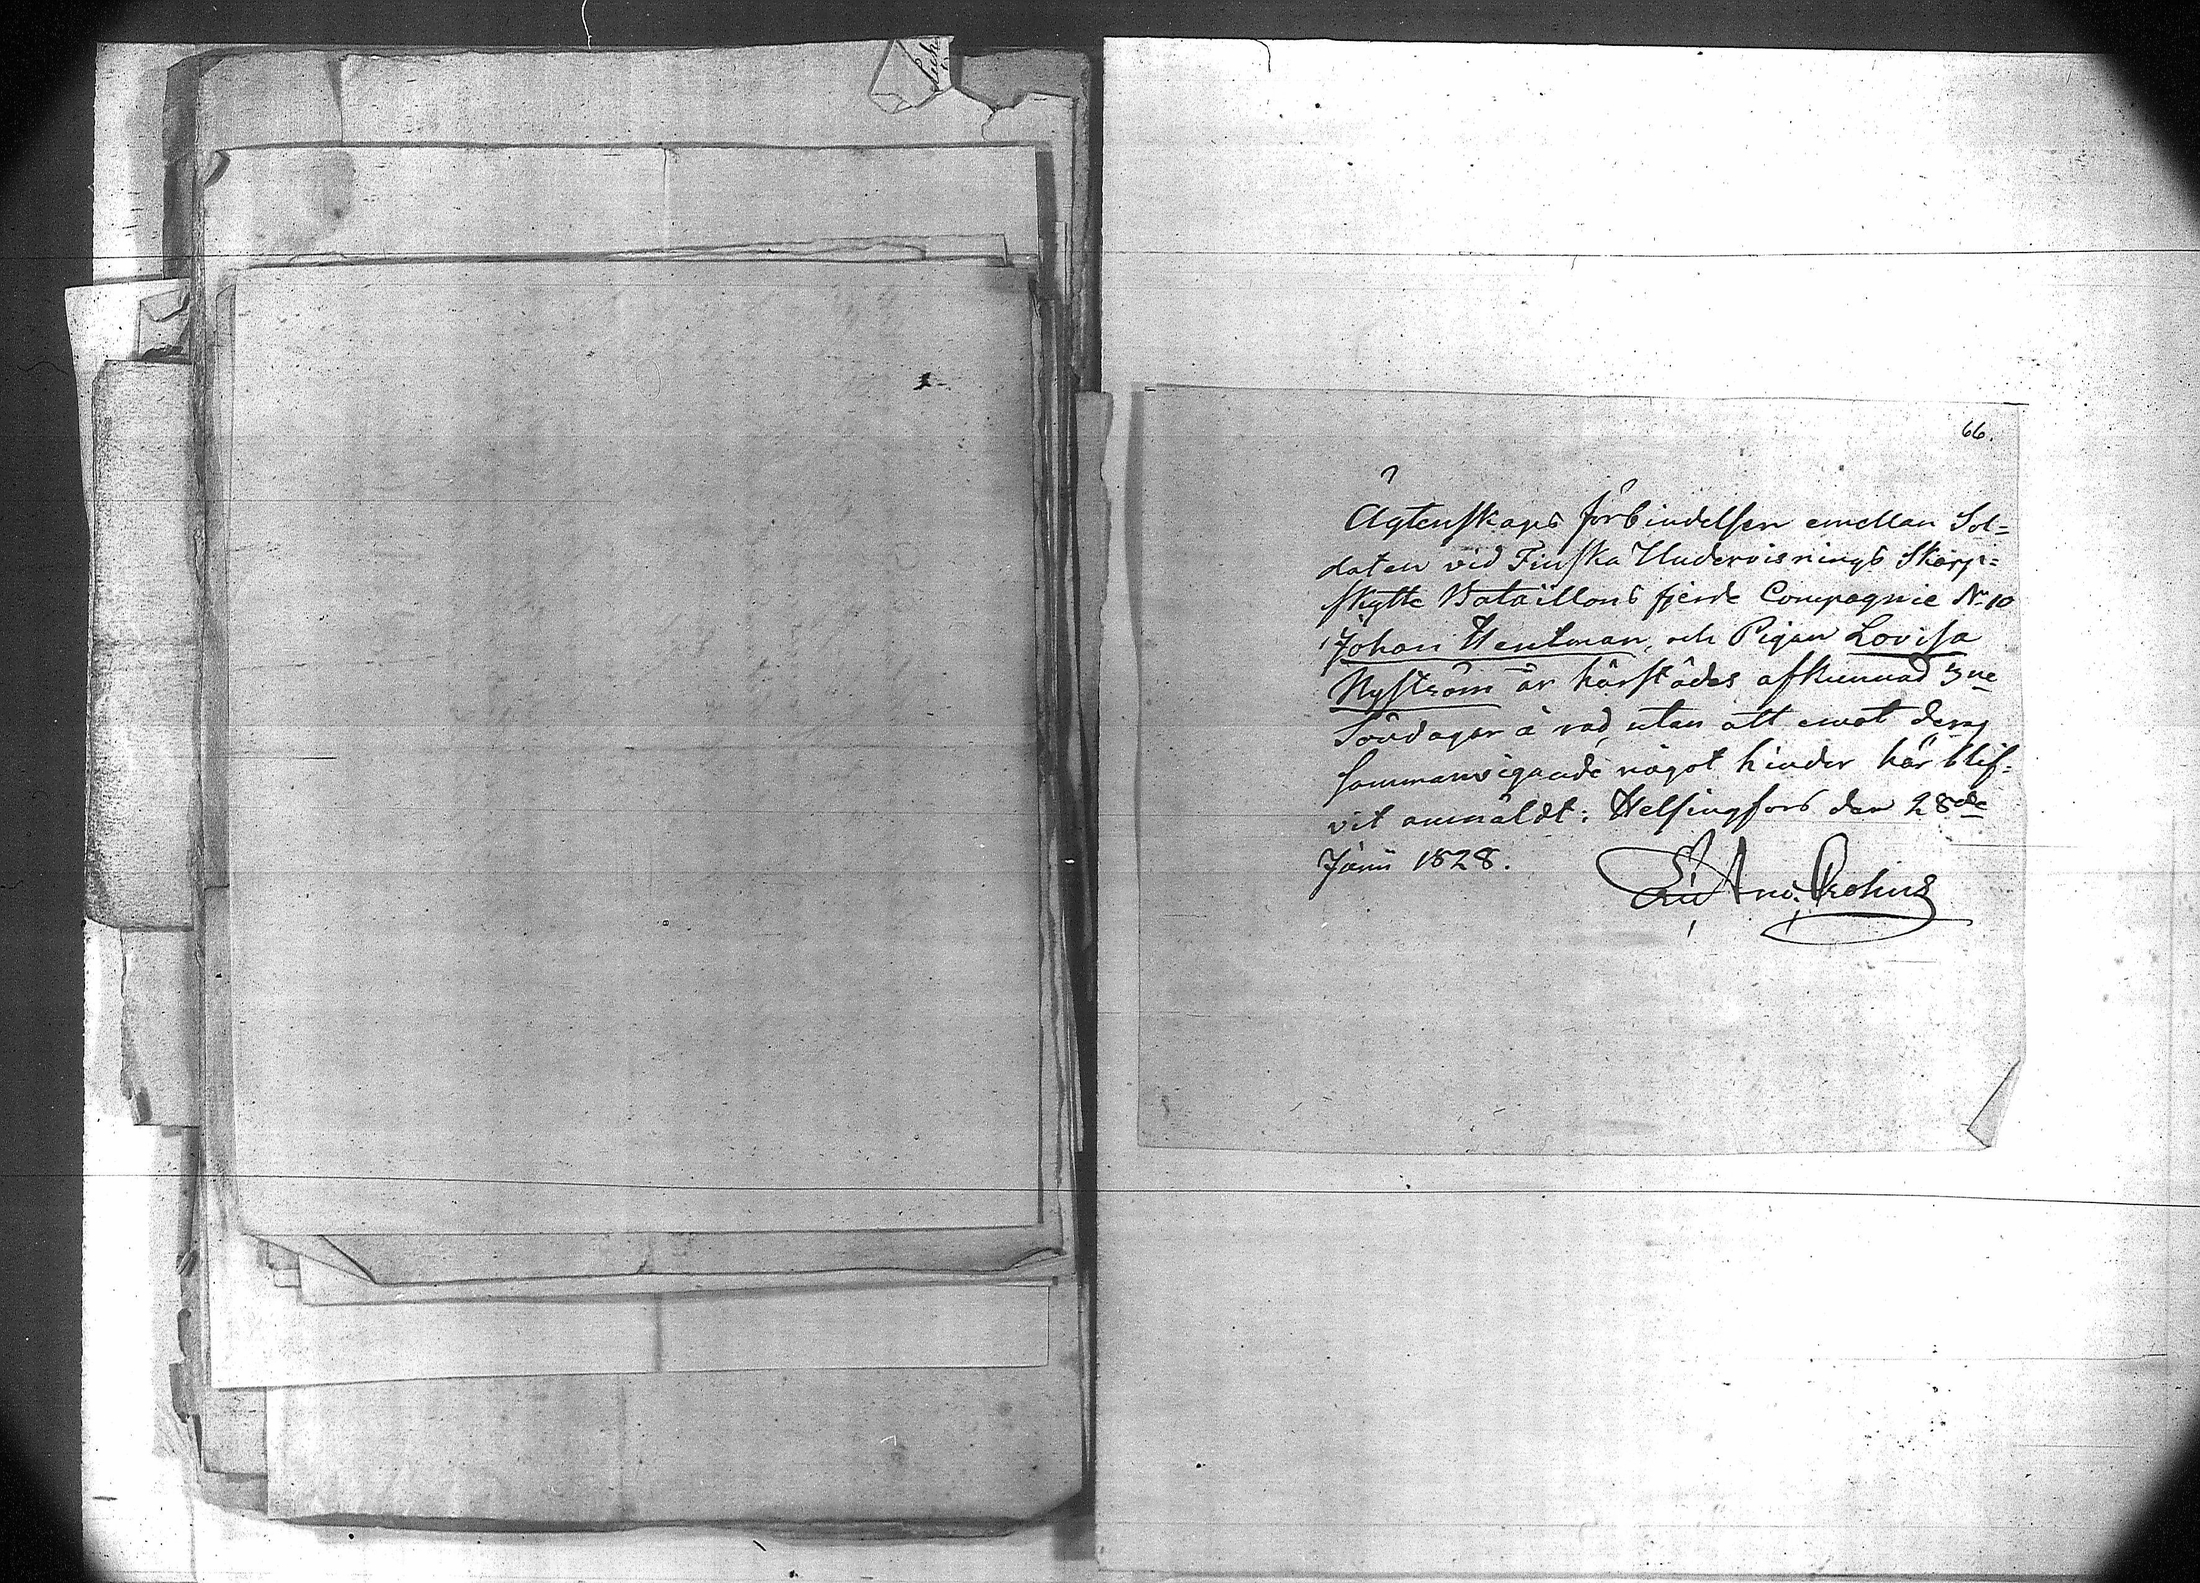 66.
Ägtenskaps förbindelsen emellan Sol=
daten vid Finska Undervisnings Skarp=
skytte Bataillons fjerde Compagnie N. 10
Johan Wentman, och Pigan Lovisa
Nyström är härstädes afkunnad 3ne
Söndagar å rad, utan att emot deras
sammanvigande något hinder här blif=
vit anmäldt; Helsingfors den 28de
Junii 1828.